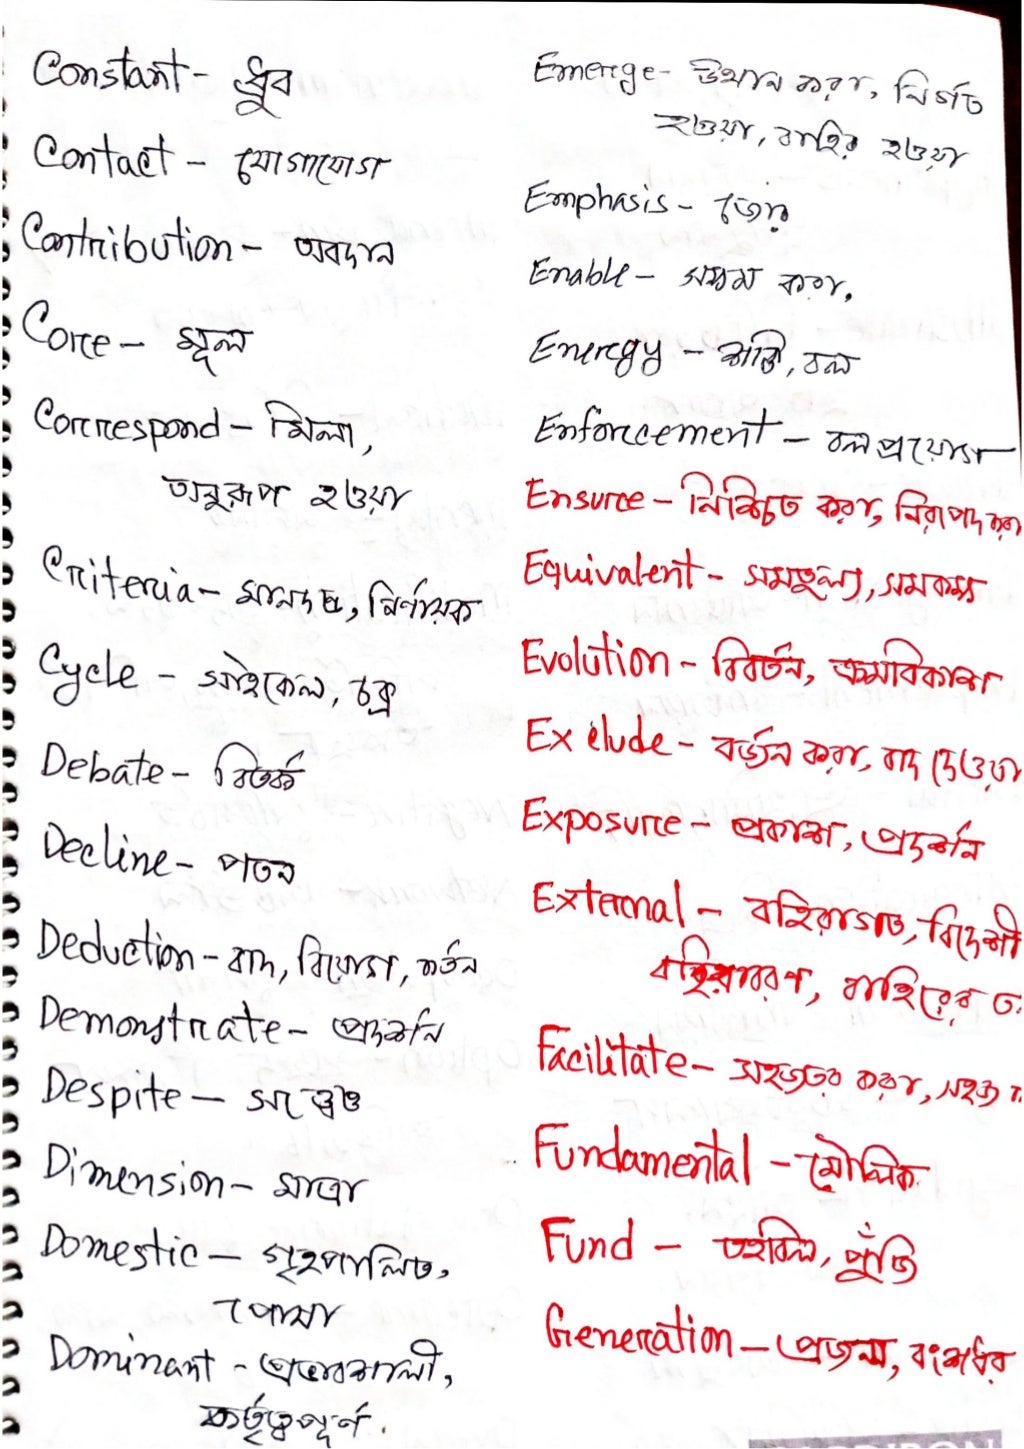 Constant - ধ্রুব
Contact - যোগাযোগ
Contribution - অবদান
Core - মূল
Correspond - মিলা,
অনুরূপ হওয়া
Criteria - মানদণ্ড, নির্ণায়ক
Cycle - সাইকেল, চক্র
Debate - বিতর্ক
Decline - পতন
Deduction - বাদ, বিয়োগ, কর্তন
Demonstrate - প্রদর্শন
Despite - সত্ত্বেও
Dimension - মাত্রা
Domestic - গৃহপালিত,
পোষা
Dominant - প্রভাবশালী,
কর্তৃত্বপূর্ণ.
Emerge - উত্থান করা, নির্গত
হওয়া, বাহির হওয়া
Emphasis - জোর
Enable - সক্ষম করা,
Energy - শক্তি, বল
Enforcement - বলপ্রয়োগ
Ensure - নিশ্চিত করা, নিরাপদ করা
Equivalent - সমতুল্য, সমকক্ষ
Evolution - বিবর্তন, ক্রমবিকাশ
Exclude - বর্জন করা, বাদ দেওয়া
Exposure - প্রকাশ, প্রদর্শন
External - বহিরাগত, বিদেশী
বহিরাবরণ, বাহিরের
Facilitate - সহজতর করা, সহজ
Fundamental - মৌলিক
Fund - তহবিল, পুঁজি
Generation - প্রজন্ম, বংশধর